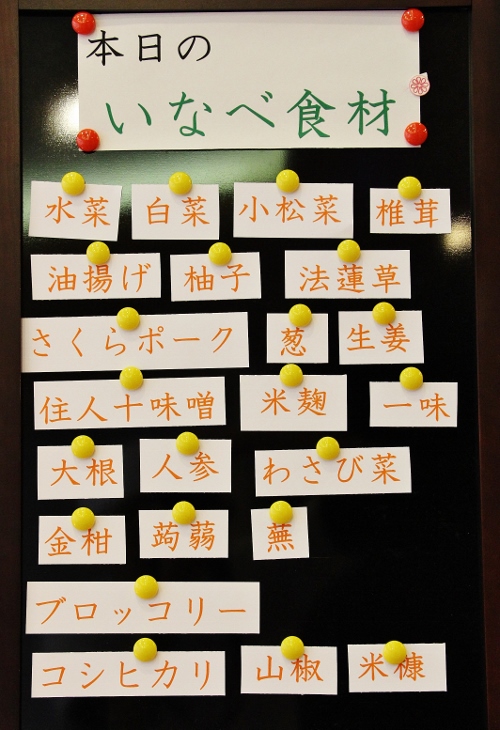 本日の
いなべ食材
水菜 白菜 小松菜 椎茸
油揚げ 柚子 法蓮草
さくらポーク 葱 生姜
住人十味噌 米麹 一味
大根 人参 わさび菜
金柑 蒟蒻 蕪
ブロッコリー
コシヒカリ 山椒 米糠